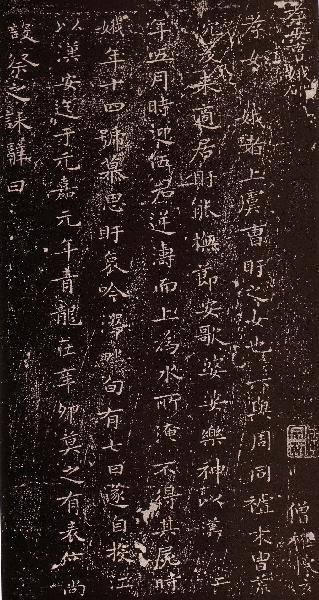 孝女曹娥碑
孝女娥者上虞曹盱之女也與周同祖末胄荒
沉爰來適居盱能撫節安歌婆娑樂神以漢
年五月時迎伍君逆濤而上為水所淹不得其屍時
娥年十四號慕思盱哀吟澤畔旬有七日遂自投江
以漢安迄于元嘉元年青龍在辛卯莫之有表度尚
設祭之誄辭曰
僧權